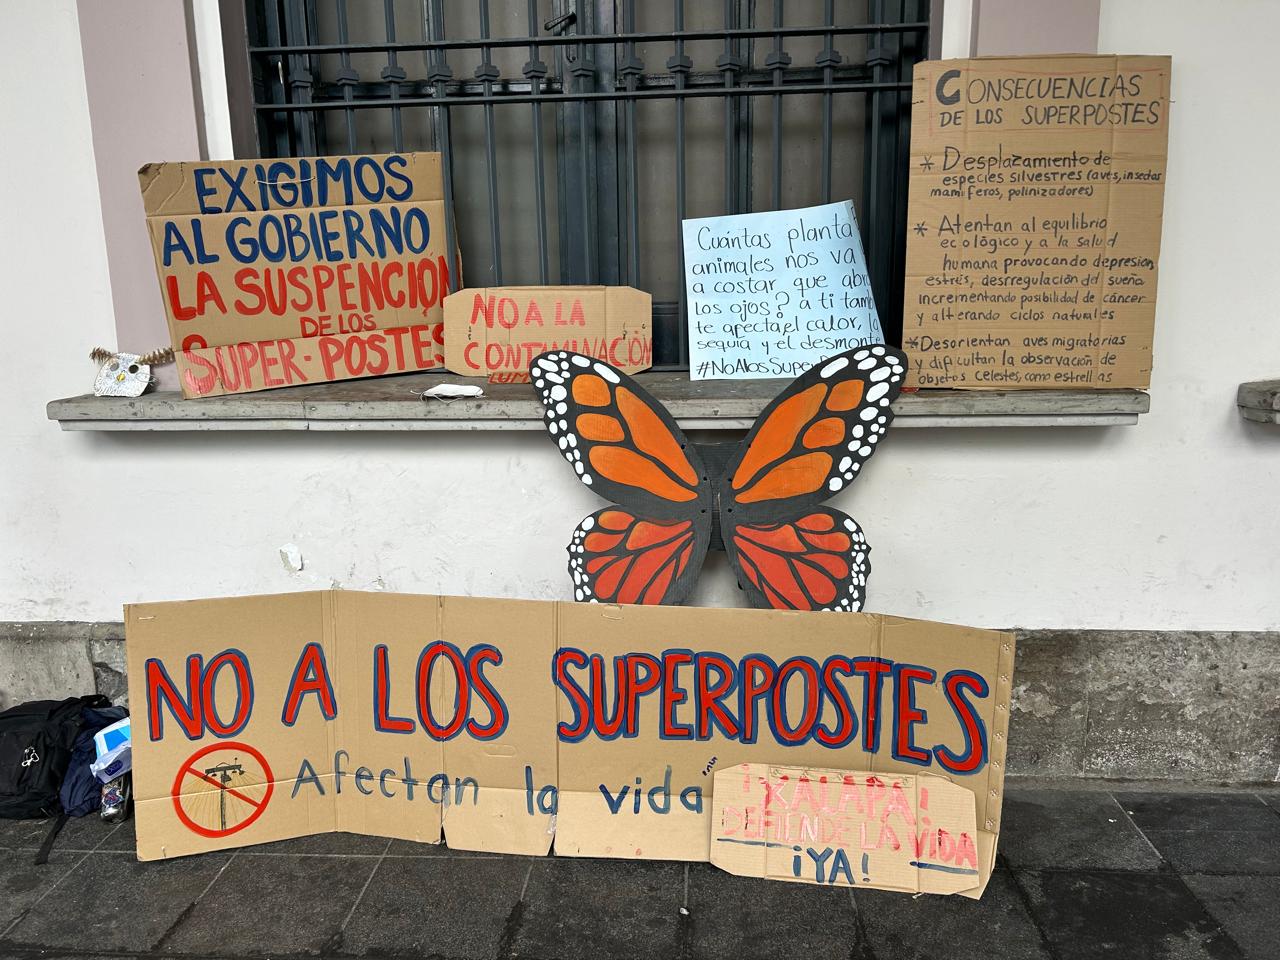 EXIGIMOS
AL GOBIERNO
LA SUSPENCIÓN
DE LOS
SUPER-POSTES
NO A LA
CONTAMINACIÓN
LUM
Cuántas planta
animales nos va
a costar que abr
los ojos? a ti tam
te afecta el calor, l
sequía y el desmonte
#NoAlosSuper
CONSECUENCIAS
DE LOS SUPERPOSTES
* Desplazamiento de
especies silvestres (aves, insectas
mamíferos, polinizadores)
* Atentan al equilibrio
ecológico y a la salud
humana provocando depresion,
estrés, desregulación del sueño
incrementando posibilidad de cáncer
y alterando ciclos naturales
* Desorientan aves migratorias
y dificultan la observación de
objetos celestes, como estrellas
NO A LOS SUPERPOSTES
Afectan la vida
¡XALAPA!
DEFIENDE LA VIDA
¡YA!